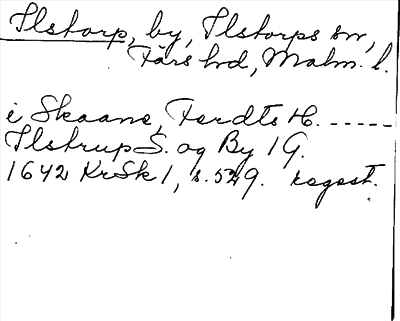 Ilstorp, by, Ilstorps sn,
Färs hd, Malm. l.
i Skaane, Ferdts H. -----
Ilstrup S. og By 1 G.
1642 KrSk 1, s. 529. regest.